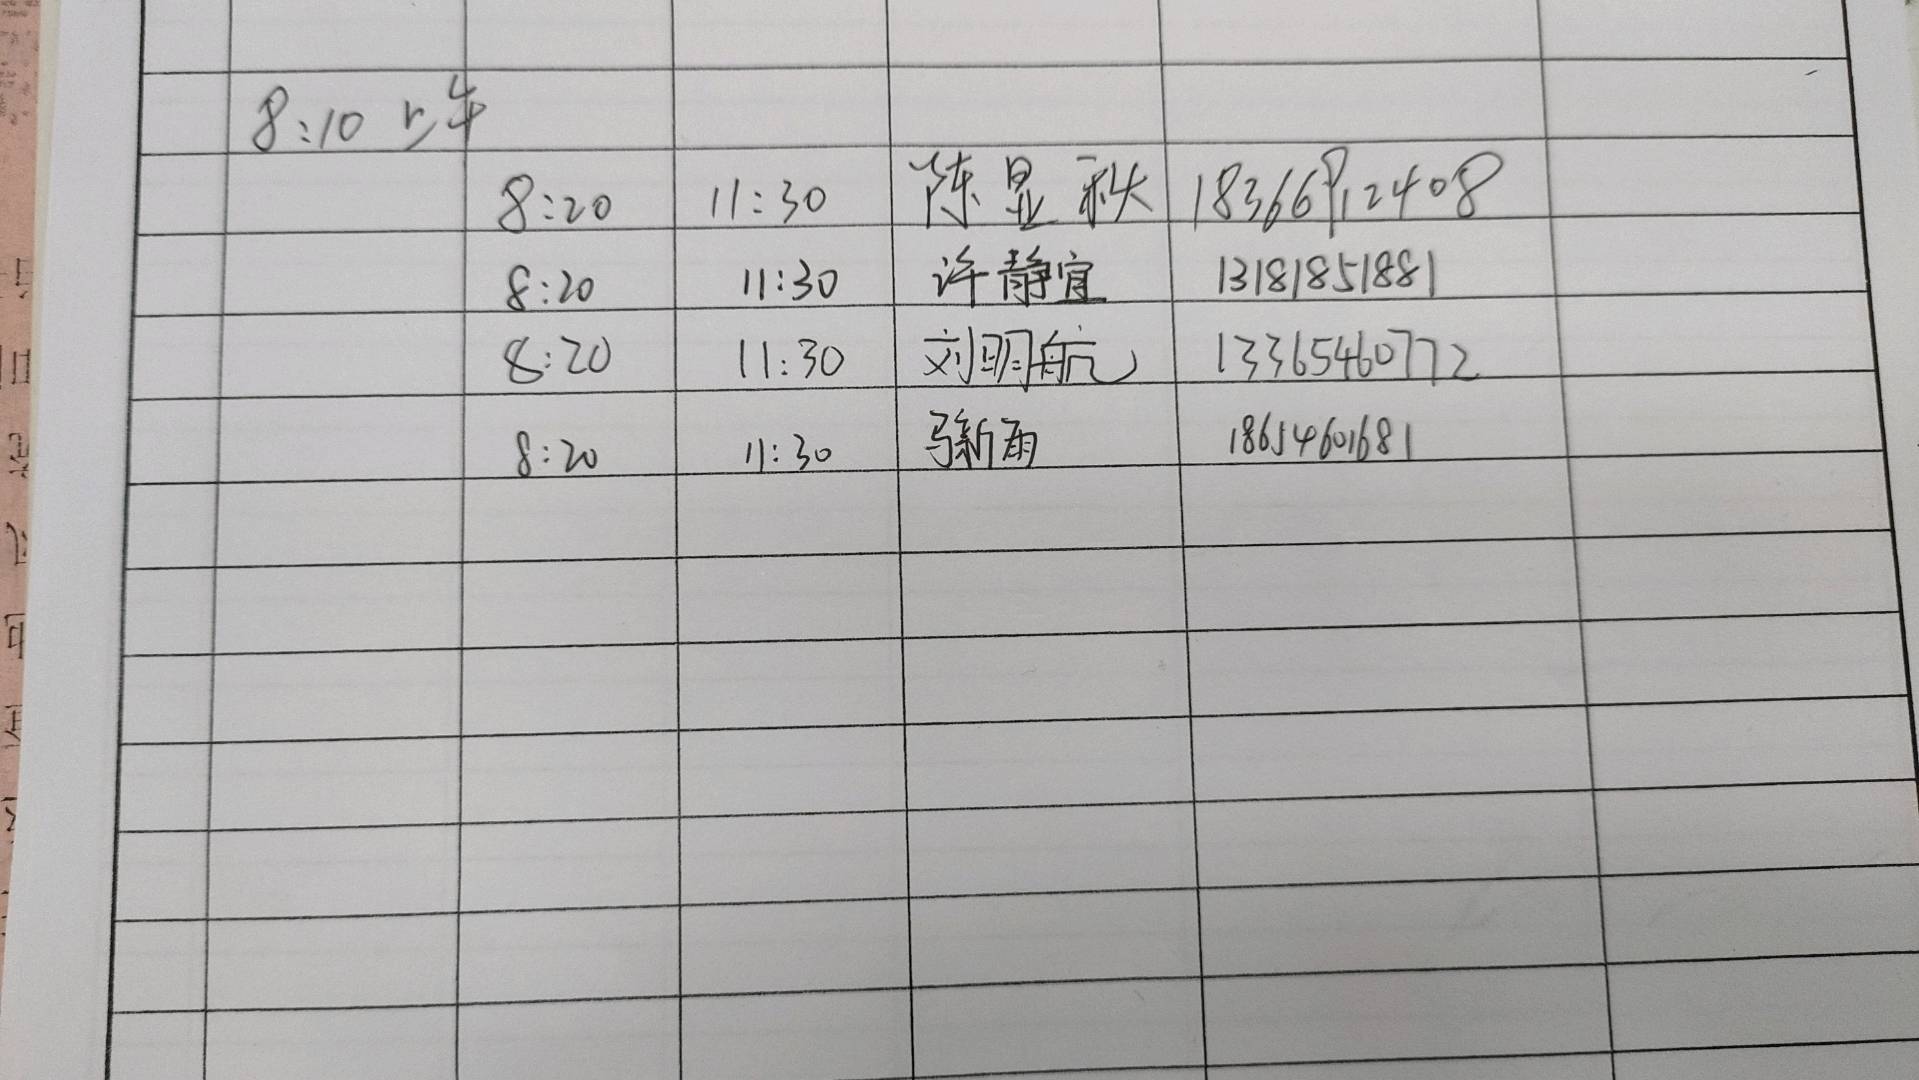 8:10 上午
8:20 11:30 陈显秋 18366912408
8:20 11:30 许静宜 13181851881
8:20 11:30 刘明航 13365460772
8:20 11:30 马新雨 18654601681